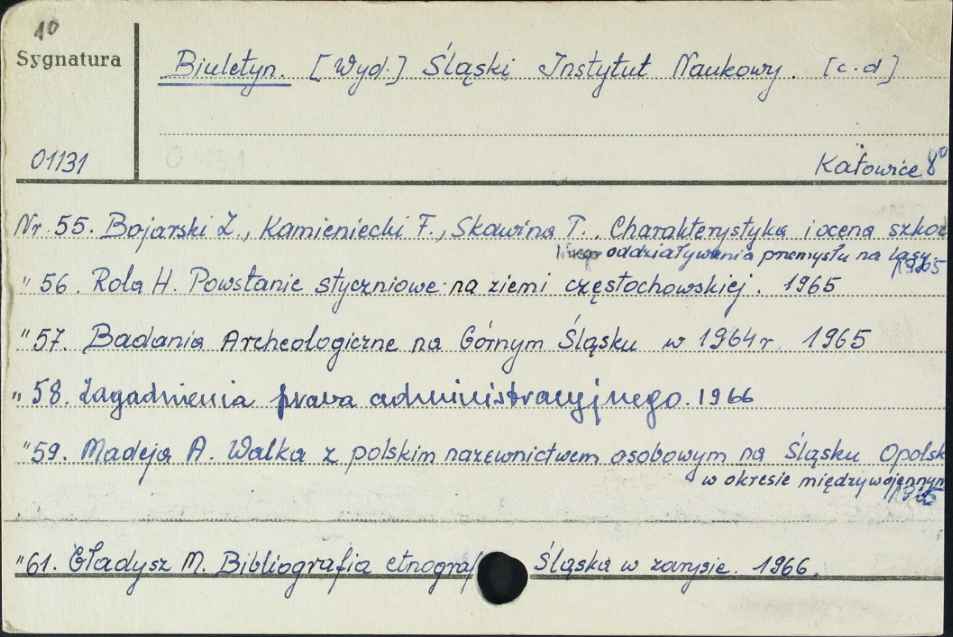 10
Sygnatura
Biuletyn. [Wyd.] Śląski Instytut Naukowy. [c.d]
01131
Katowice 8°
Nr 55. Bojarski Z., Kamieniecki F., Skawina T., Charakterystyka i ocena szkod
liwego oddziaływania przemysłu na lasy.
1965
"56. Rola H. Powstanie styczniowe na ziemi częstochowskiej. 1965
"57. Badania Archeologiczne na Górnym Śląsku w 1964 r. 1965
"58. Zagadnienia prawa administracyjnego. 1966
"59. Madeja A. Walka z polskim nazewnictwem osobowym na Śląsku Opolsk
w okresie międzywojennym
1965
"61. Gładysz M. Bibliografia etnograf Śląska w zarysie. 1966.